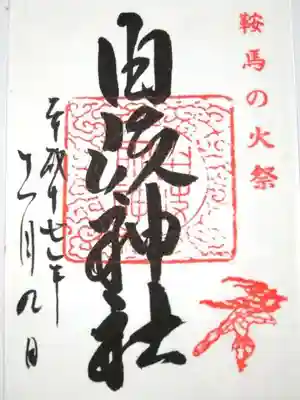 鞍馬の火祭
由岐神社
平成十七年
月九日